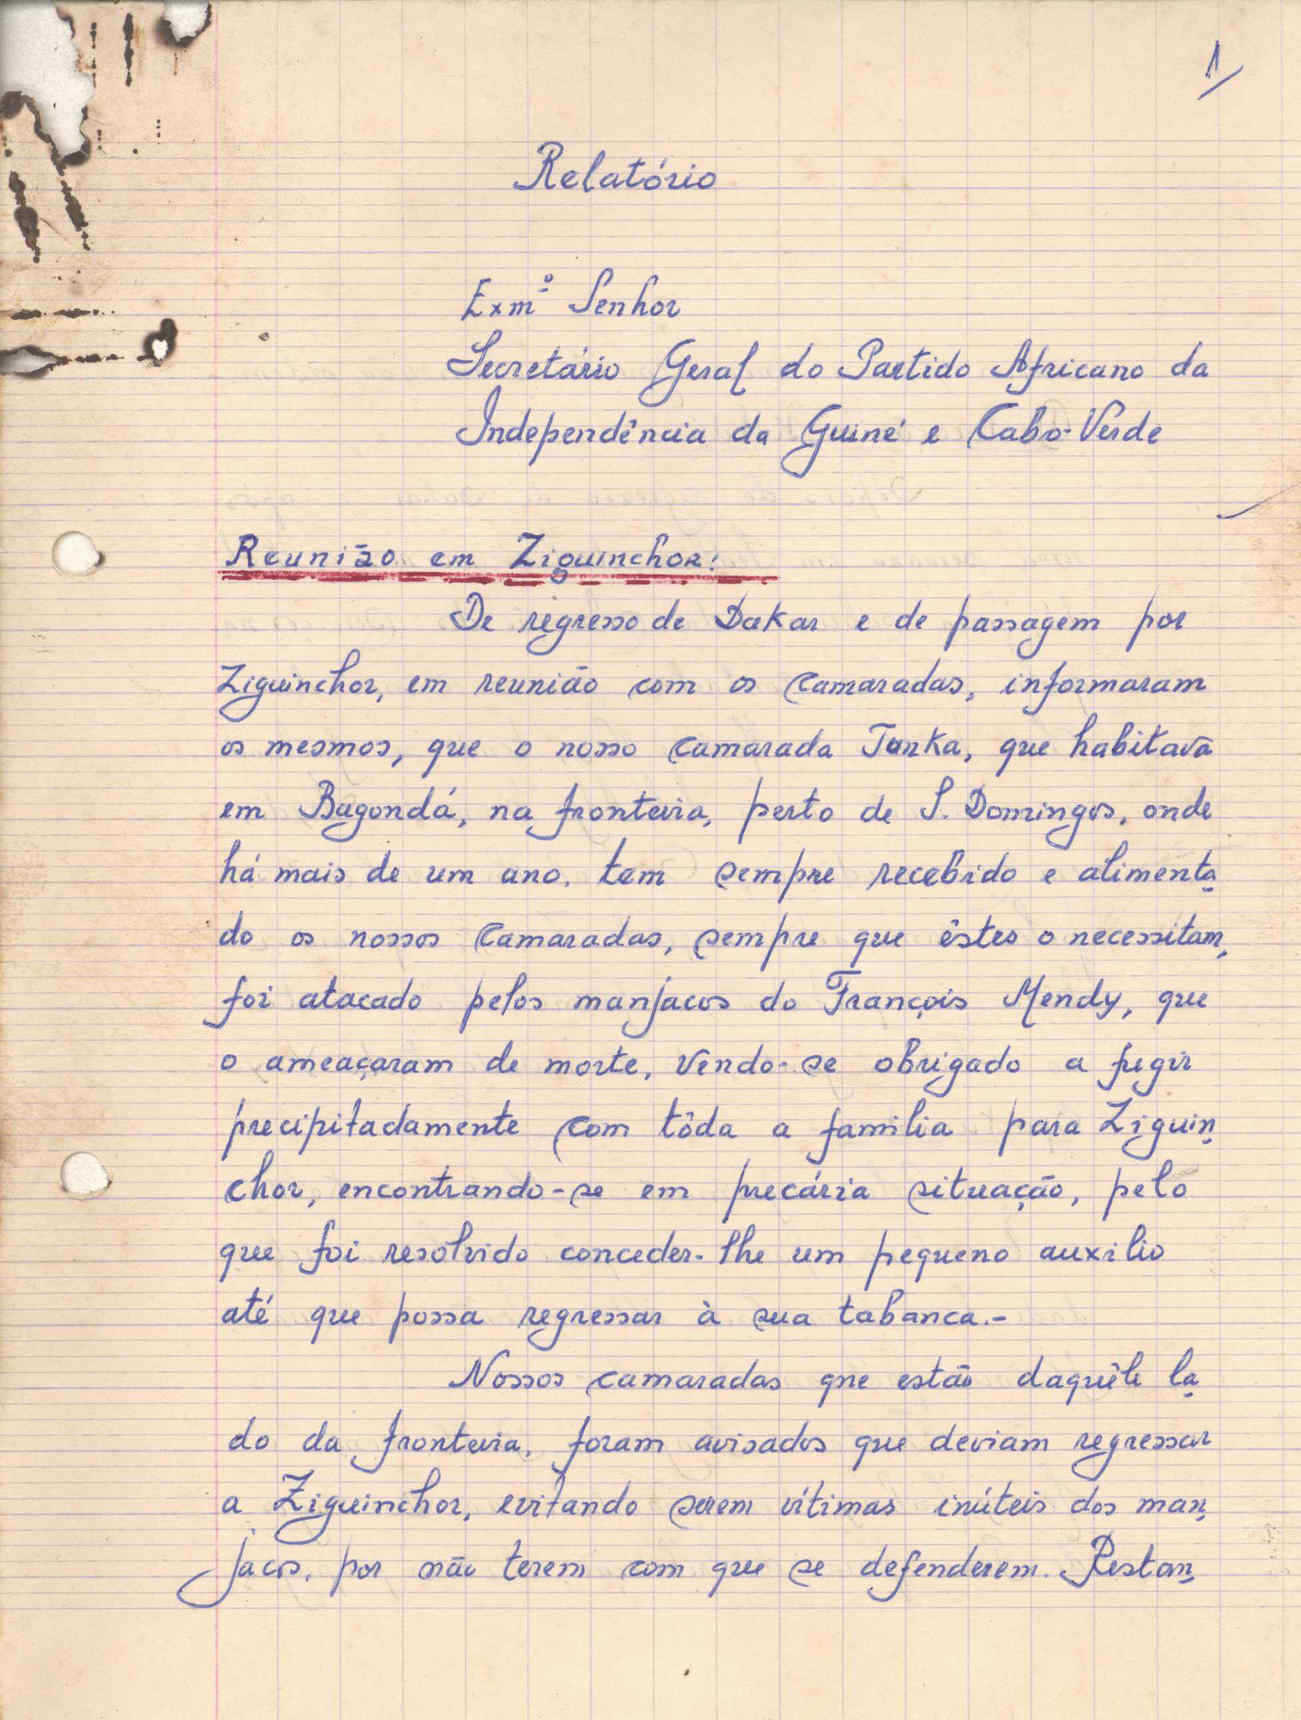 1
Relatório
Exmº Senhor
Secretário Geral do Partido Africano da
Independência da Guiné e Cabo-Verde
Reunião em Ziguinchor:
De regresso de Dakar e de passagem por
Ziguinchor, em reunião com os camaradas, informaram
os mesmos, que o nosso camarada Tanka, que habitava
em Bagondá, na fronteira, perto de S. Domingos, onde
há mais de um ano, tem sempre recebido e alimenta
do os nossos camaradas, sempre que êstes o necessitam,
foi atacado pelos manjacos do François Mendy, que
o ameaçaram de morte, vendo-se obrigado a fugir
precipitadamente com tôda a familia para Ziguin
chor, encontrando-se em precária situação, pelo
que foi resolvido conceder-lhe um pequeno auxilio
até que possa regressar à sua tabanca.-
Nossos camaradas que estão daquêle la
do da fronteira, foram avisados que deviam regressar
a Ziguinchor, evitando serem vítimas inúteis dos man
jacos, por não terem com que se defenderem. Restan